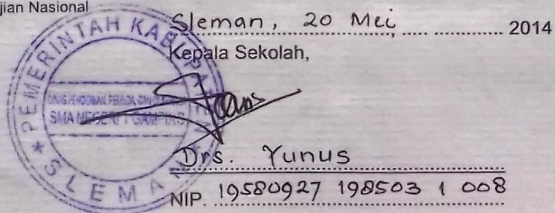 jian Nasional
Sleman, 20 Mei 2014
Kepala Sekolah,
PEMERINTAH KABUPA
SMA NEGERI 1 GAMPING
SLEMA
Drs. Yunus
NIP. 19580927 198503 1 008